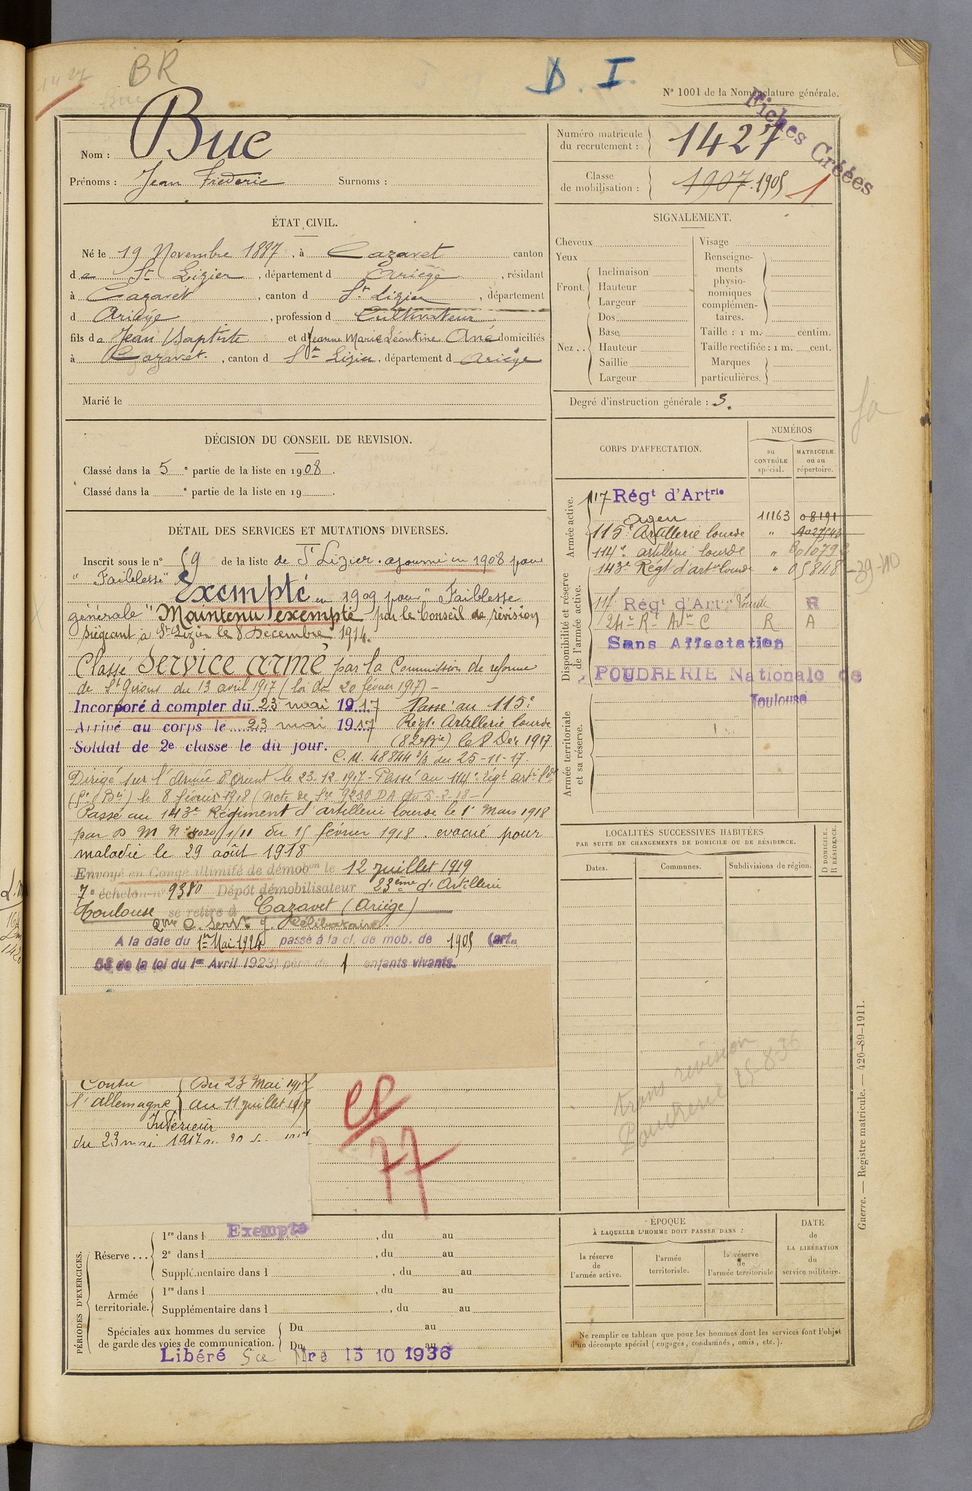 BR
D. I.
N° 1001 de la Nomenclature générale.
Fiches Créées
Nom : Buc
Prénoms : Jean Frédéric Surnoms :
Numéro matricule du recrutement : 1427
Classe de mobilisation : 1907. 1905
1
ÉTAT CIVIL.
Né le 19 Novembre 1887, à Cazavet canton
de St Lizier, département d Ariège, résidant
à Cazavet, canton d St Lizier, département
d Ariège, profession d Cultivateur
fils de Jean Baptiste et d Jeanne Marie Léontine Ané domiciliés
à Cazavet, canton d St Lizier, département d Ariège
Marié le
SIGNALEMENT.
Cheveux
Yeux
Front.
Inclinaison
Hauteur
Largeur
Dos
Base
Nez . .
Hauteur
Saillie
Largeur
Visage
Renseignements physionomiques complémentaires.
Taille : 1 m. centim.
Taille rectifiée : 1 m. cent.
Marques particulières.
Degré d'instruction générale : 3.
DÉCISION DU CONSEIL DE REVISION.
Classé dans la 5e partie de la liste en 1908.
Classé dans la e partie de la liste en 19
DÉTAIL DES SERVICES ET MUTATIONS DIVERSES.
Inscrit sous le n° 59 de la liste de St Lizier. ajourné en 1908 pour
" Faiblesse "
Exempté en 1909 pour " Faiblesse
générale " Maintenu exempté par le Conseil de révision
siégeant à St Lizier le 8 Décembre 1914.
Classé Service armé par la Commission de réforme
de St Girons du 13 avril 1917 (loi du 20 février 1917) -
Incorporé à compter du 23 mai 1917 Passé au 115e
Arrivé au corps le 23 mai 1917 Régt Artillerie lourde
Soldat de 2e classe le dit jour. (82e Bie) le 8 Dec 1917
C.M. 48844 3/3 du 25-11-17.
Dirigé sur l'Armée d'Orient le 23.12.1917 - Passé au 114e Régt art. lde
le 8 février 1918 (Note de Sce 9230 DA du 5-2-18 -
Passé au 143e Régiment d'artillerie lourde le 1er Mars 1918
par D M N° 8020 1/11 du 15 février 1918. evacué pour
maladie le 29 août 1918
Envoyé en Congé illimité de démobon le 12 juillet 1919
7e échelon n° 9380 Dépôt démobilisateur 23ème d'Artillerie
Toulouse se retire à Cazavet (Ariège)
A la date du 1er Mai 1924 passé à la cl. de mob. de 1905 (art.
58 de la loi du 1er Avril 1923) père de 1 enfants vivants.
Contre l'Allemagne
Du 23 Mai 1917
au 11 juillet 1919
Intérieur
du 23 mai 1917
CP
77
CORPS D'AFFECTATION.
NUMÉROS
au CONTRÔLE spécial.
MATRICULE ou au répertoire.
Armée active.
117 Régt d'Artrie
agen 11163 08191
115e Artillerie lourde "
114e artillerie lourde "
143e Régt d'art lourde " 05848
39-40
Disponibilité et réserve de l'armée active.
117 Régt d'Artie lourde R
24e Rt Arie C R A
Sans Affectation
POUDRERIE Nationale de
Toulouse
Armée territoriale et sa réserve.
LOCALITÉS SUCCESSIVES HABITÉES
PAR SUITE DE CHANGEMENTS DE DOMICILE OU DE RÉSIDENCE.
Dates.
Communes.
Subdivisions de région.
D DOMICILE. R RÉSIDENCE.
trans révision
Poudrerie 25-8-36
PÉRIODES D'EXERCICES.
Réserve . . .
1re dans l Exempté, du au
2e dans l, du au
Supplémentaire dans l, du au
Armée territoriale.
1re dans l, du au
Supplémentaire dans l, du au
Spéciales aux hommes du service de garde des voies de communication.
Du au
Du au
Libéré Sce Mre 15 10 1936
ÉPOQUE
À LAQUELLE L'HOMME DOIT PASSER DANS :
la réserve de l'armée active.
l'armée territoriale.
la réserve de l'armée territoriale
DATE DE LA LIBÉRATION du service militaire.
Ne remplir ce tableau que pour les hommes dont les services font l'objet
d'un décompte spécial (engagés, condamnés, omis, etc.).
Guerre. — Registre matricule. — 426-89-1911.